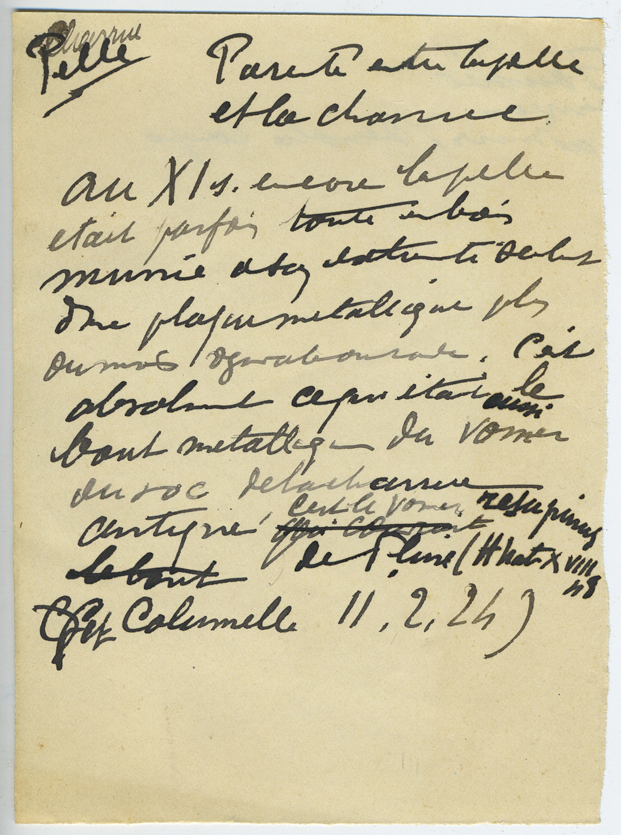 Charrue
Pelle Parenté entre la pelle
et la charrue
au XI s. encore la pelle
etait parfois toute en bois
munie a son extremité seulet
d'une plaque metallique plus
ou moins . C'est
absolument ce qu'etait aussi le
bout metallique du vomer
ou soc de la charrue
antique, c'est le vomer resupinus
qui
le bout de Pline (H nat. XVIII
48
Cf Columelle II, 2, 24)